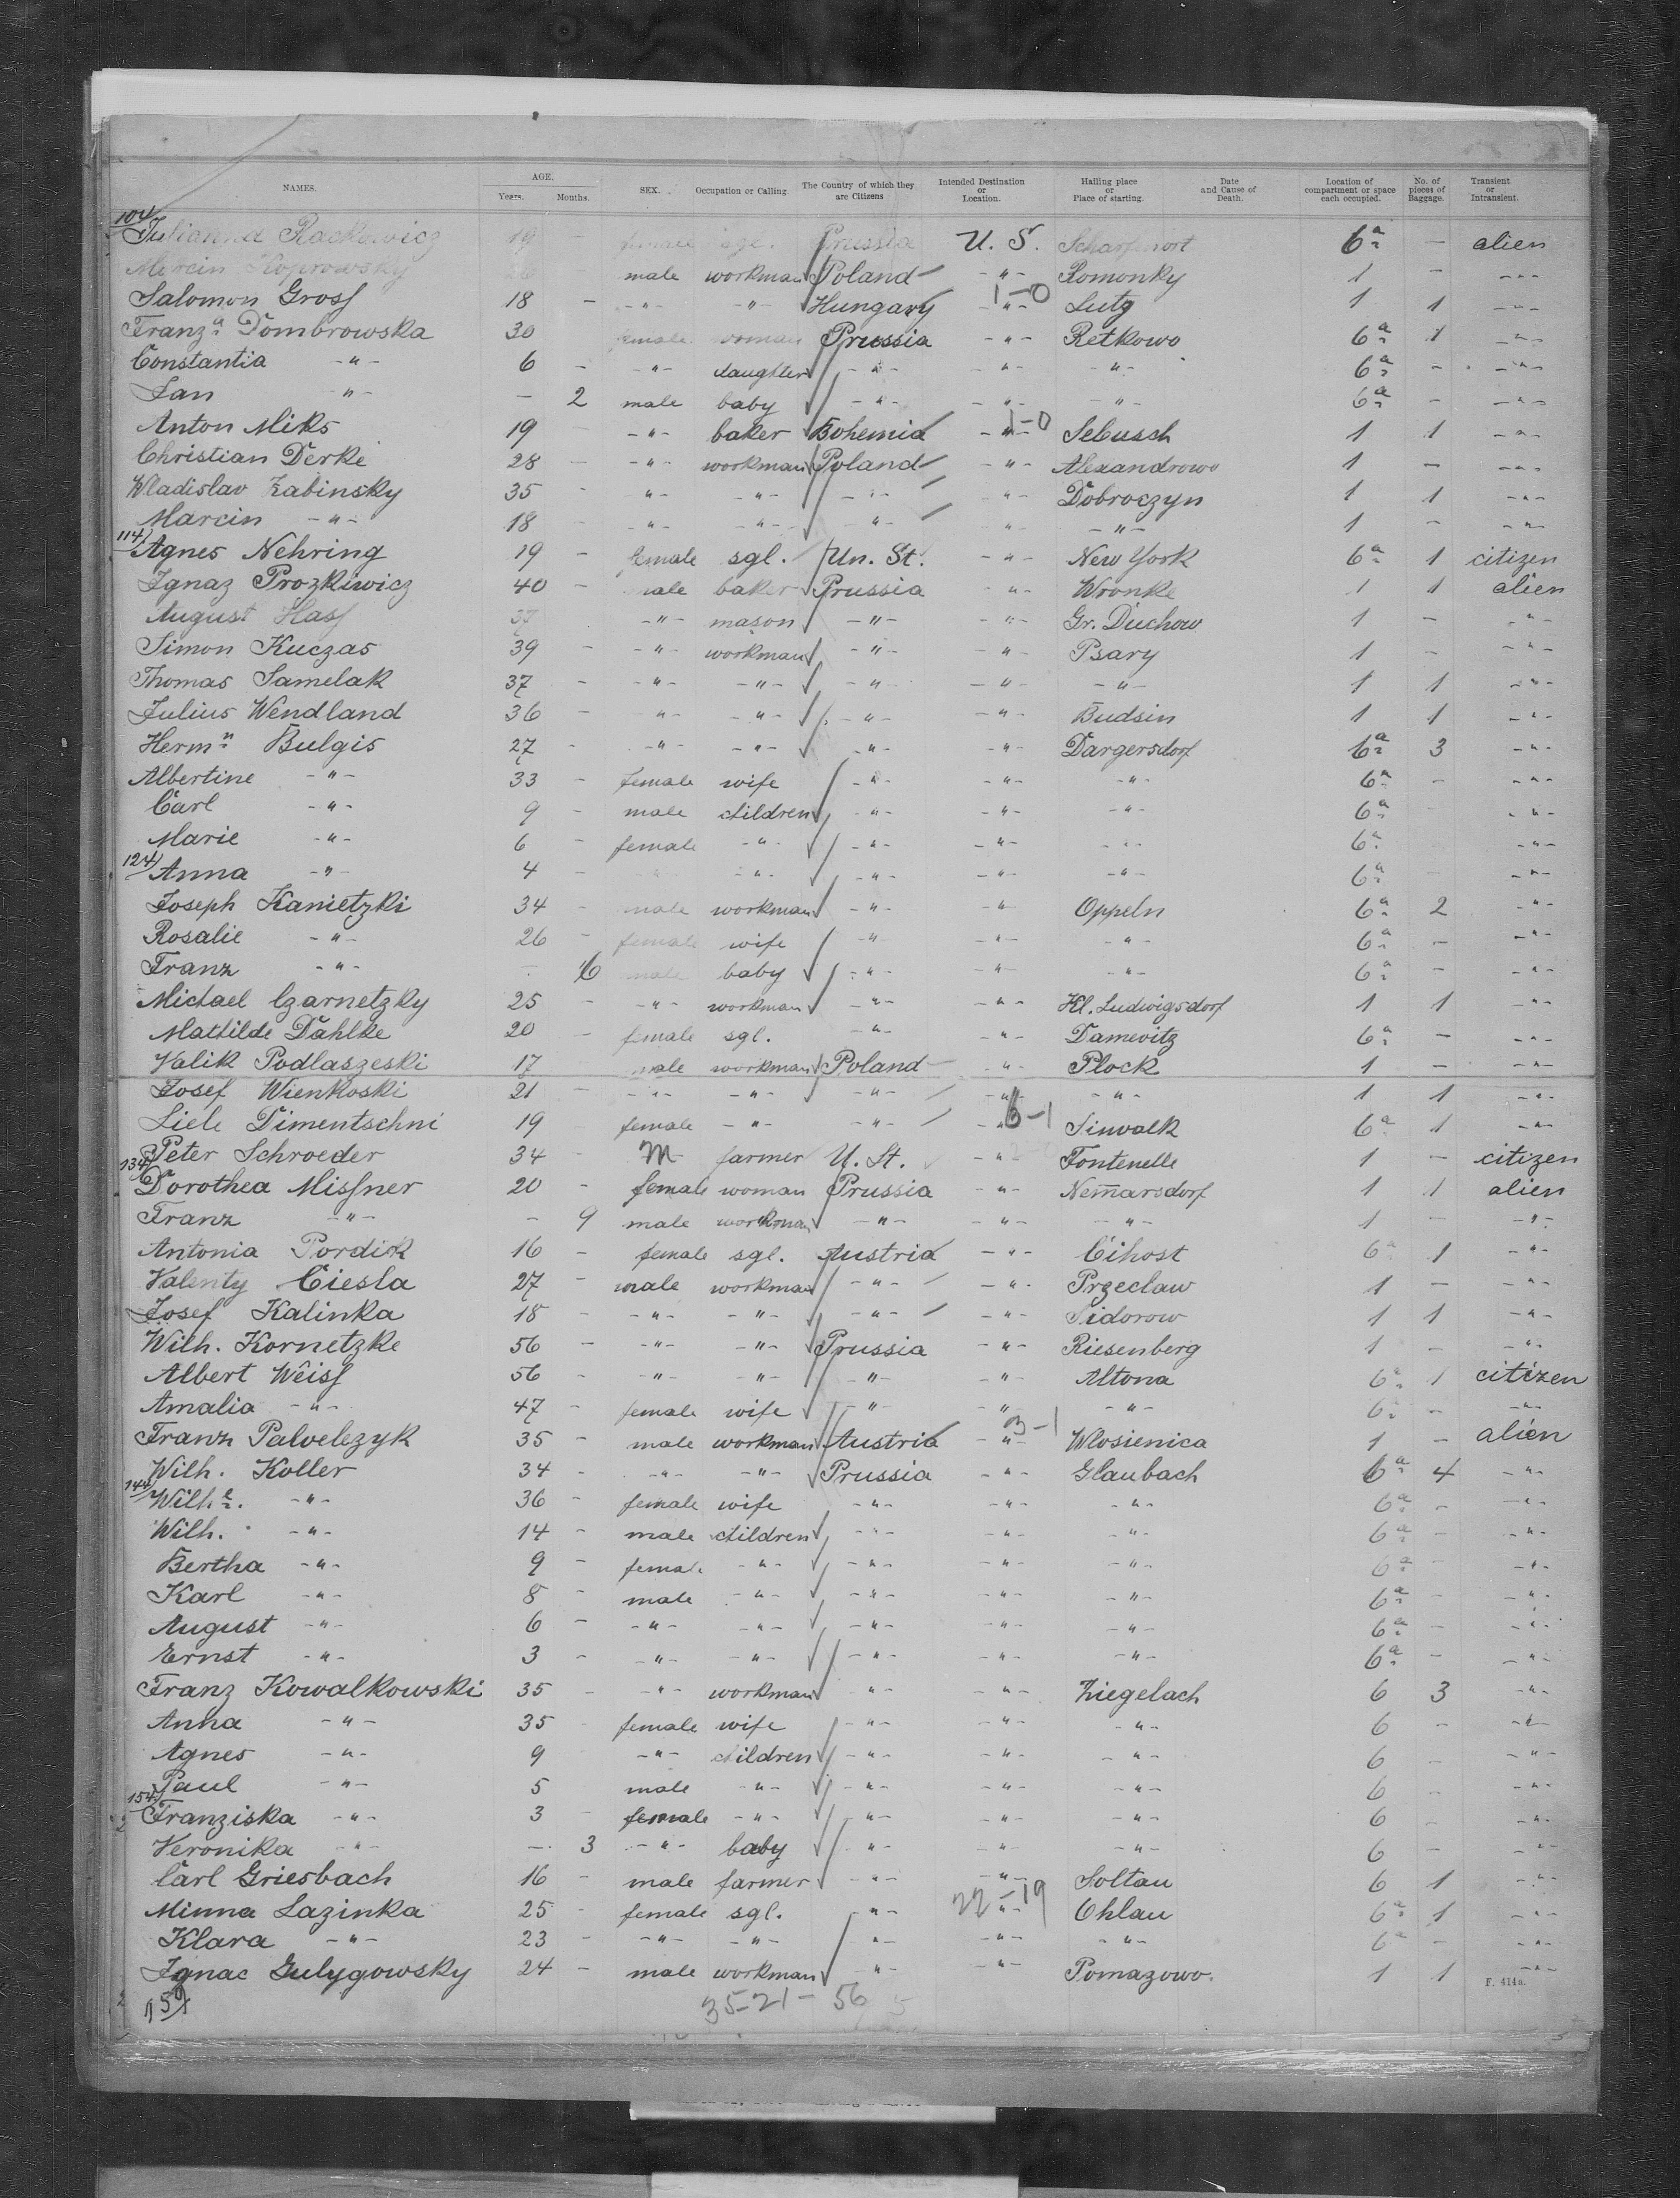 NAMES. AGE. Years. Months. SEX. Occupation or Calling. The Country of which they are Citizens Intended Destination or Location. Hailing place or Place of starting. Date and Cause of Death. Location of compartment or space each occupied. No. of pieces of Baggage. Transient or Intransient.
104 Julianna Rackowicz 19 - female sgl. Prussia U. S. 6a - alien
Marcin Koprowsky male workman Poland -"- Romonky 1 - -"-
Salomon Gross 18 - -"- -"- Hungary -"- 1-0 Lutz 1 1 -"-
Franza Dombrowska 30 female woman Prussia -"- Retkowo 6a 1 -"-
Constantia -"- 6 - -"- daughter -"- -"- -"- 6a - -"-
Jan -"- - 2 male baby -"- -"- -"- 6a - -"-
Anton Miks 19 -"- baker Bohemia -"- 1-0 Sebusch 1 1 -"-
Christian Derke 28 - -"- workman Poland -"- Alexandrowo 1 - -"-
Wladislav Zabinsky 35 - -"- -"- -"- " Dobroczyn 1 1 -"-
Marcin -"- 18 - -"- -"- " " -"- 1 - -"-
114 Agnes Nehring 19 - female sgl. Un. St. -"- New York 6a 1 citizen
Ignaz Prozkiwicz 40 - male baker Prussia -"- Wronke 1 1 alien
August Hass 37 -"- mason -"- -"- Gr. Duchow 1 - -"-
Simon Kuczas 39 - -"- workman -"- -"- Psary 1 - -"-
Thomas Samelak 37 - -"- -"- -"- -"- -"- 1 1 -"-
Julius Wendland 36 - -"- -"- -"- -"- Budsin 1 1 -"-
Hermn Bulgis 27 - -"- -"- -"- -"- Dargersdorf 6a 3 -"-
Albertine -"- 33 - female wife -"- -"- -"- 6a - -"-
Carl -"- 9 - male children -"- -"- -"- 6a -"-
Marie -"- 6 - female -"- -"- -"- -"- 6a -"-
124 Anna -"- 4 - -"- -"- -"- -"- 6a - -"-
Joseph Kanietzki 34 - male workman -"- -"- Oppeln 6a 2 -"-
Rosalie -"- 26 - female wife -"- -"- -"- 6a - -"-
Franz -"- - 6 male baby -"- -"- -"- 6a - -"-
Michael Czarnetzky 25 - -"- workman -"- -"- Kl. Ludwigsdorf 1 1 -"-
Mathilde Dahlke 20 - female sgl. -"- -"- Damevitz 6a - -"-
Valik Podlaszeski 17 male workman Poland -"- Plock 1 - -"-
Josef Wienkoski 21 - -"- -"- -"- -"- -"- 1 1 -"-
Liele Dimentschni 19 female -"- -"- " 6-1 Sinvalk 6a 1 -"-
Peter Schroeder 34 - M farmer U. St. -"- Fontenelle 1 - citizen
134 Dorothea Missner 20 - female woman Prussia -"- Nemarsdorf 1 1 alien
Franz -"- - 9 male workman -"- -"- -"- 1 - -"-
Antonia Pordick 16 - female sgl. Austria -"- Cihost 6a 1 -"-
Valenty Ciesla 27 - male workman -"- -"- Przeclaw 1 - -"-
Josef Kalinka 18 - -"- -"- -"- -"- Sidorow 1 1 -"-
Wilh. Kornetzke 56 - -"- -"- Prussia -"- Riesenberg 1 - -"-
Albert Weiss 56 - -"- -"- -"- -"- Altona 6a 1 citizen
Amalia -"- 47 - female wife -"- -"- -"- 6a - -"-
Franz Palvelezyk 35 - male workman Austria -"- 3-1 Wlosienica 1 - alien
Wilh. Koller 34 - -"- -"- Prussia -"- Glaubach 6a 4 -"-
144 Wilhe. -"- 36 - female wife -"- -"- -"- 6a - -"-
Wilh. -"- 14 - male children -"- -"- -"- 6a - -"-
Bertha -"- 9 - female -"- -"- -"- -"- 6a - -"-
Karl -"- 8 - male -"- -"- -"- -"- 6a - -"-
August -"- 6 - -"- -"- -"- -"- -"- 6a - -"-
Ernst -"- 3 - -"- -"- -"- -"- -"- 6a - -"-
Franz Kowalkowski 35 - -"- workman -"- -"- Ziegelach 6 3 -"-
Anna -"- 35 - female wife -"- -"- -"- 6 - -"-
Agnes -"- 9 -"- children -"- -"- -"- 6 - -"-
Paul -"- 5 male -"- -"- -"- -"- 6 - -"-
154 Franziska -"- 3 - female -"- -"- -"- -"- 6 - -"-
Veronika -"- - 3 -"- baby -"- -"- -"- 6 - -"-
Carl Griesbach 16 - male farmer -"- -"- Soltau 6 1 -"-
Minna Lazinka 25 - female sgl. -"- -"- 22-19 Ohlau 6a 1 -"-
Klara -"- 23 - -"- -"- -"- -"- -"- 6a - -"-
Ignac Gulygowsky 24 - male workman -"- -"- Pomazowo. 1 1 -"-
F. 414a.
159 35-21- 56